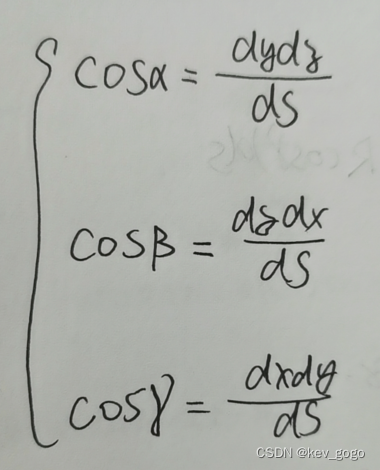 cosα = dydz/dS
cosβ = dzdx/dS
cosγ = dxdy/dS
CSDN @kev_gogo